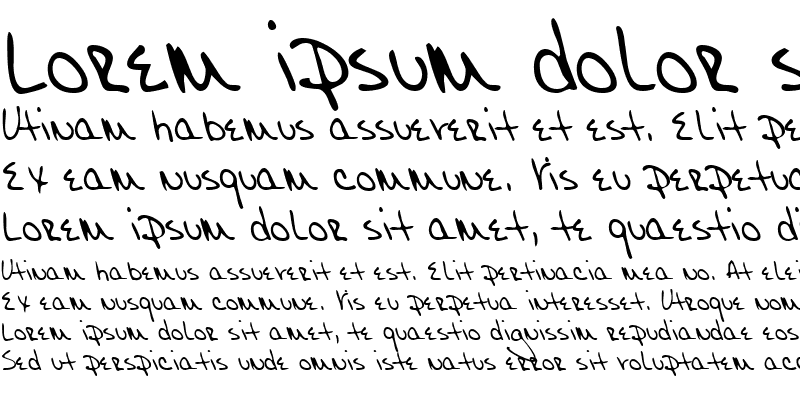 Lorem ipsum dolor s
Utinam habemus assueverit et est. Elit pe
Ex eam nusquam commune. Vis eu perpetua
Lorem ipsum dolor sit amet, te quaestio di
Utinam habemus assueverit et est. Elit pertinacia mea no. At elei
Ex eam nusquam commune. Vis eu perpetua interesset. Utroque nom
Lorem ipsum dolor sit amet, te quaestio dignissim repudiandae eos
Sed ut perspiciatis unde omnis iste natus error sit voluptatem acc